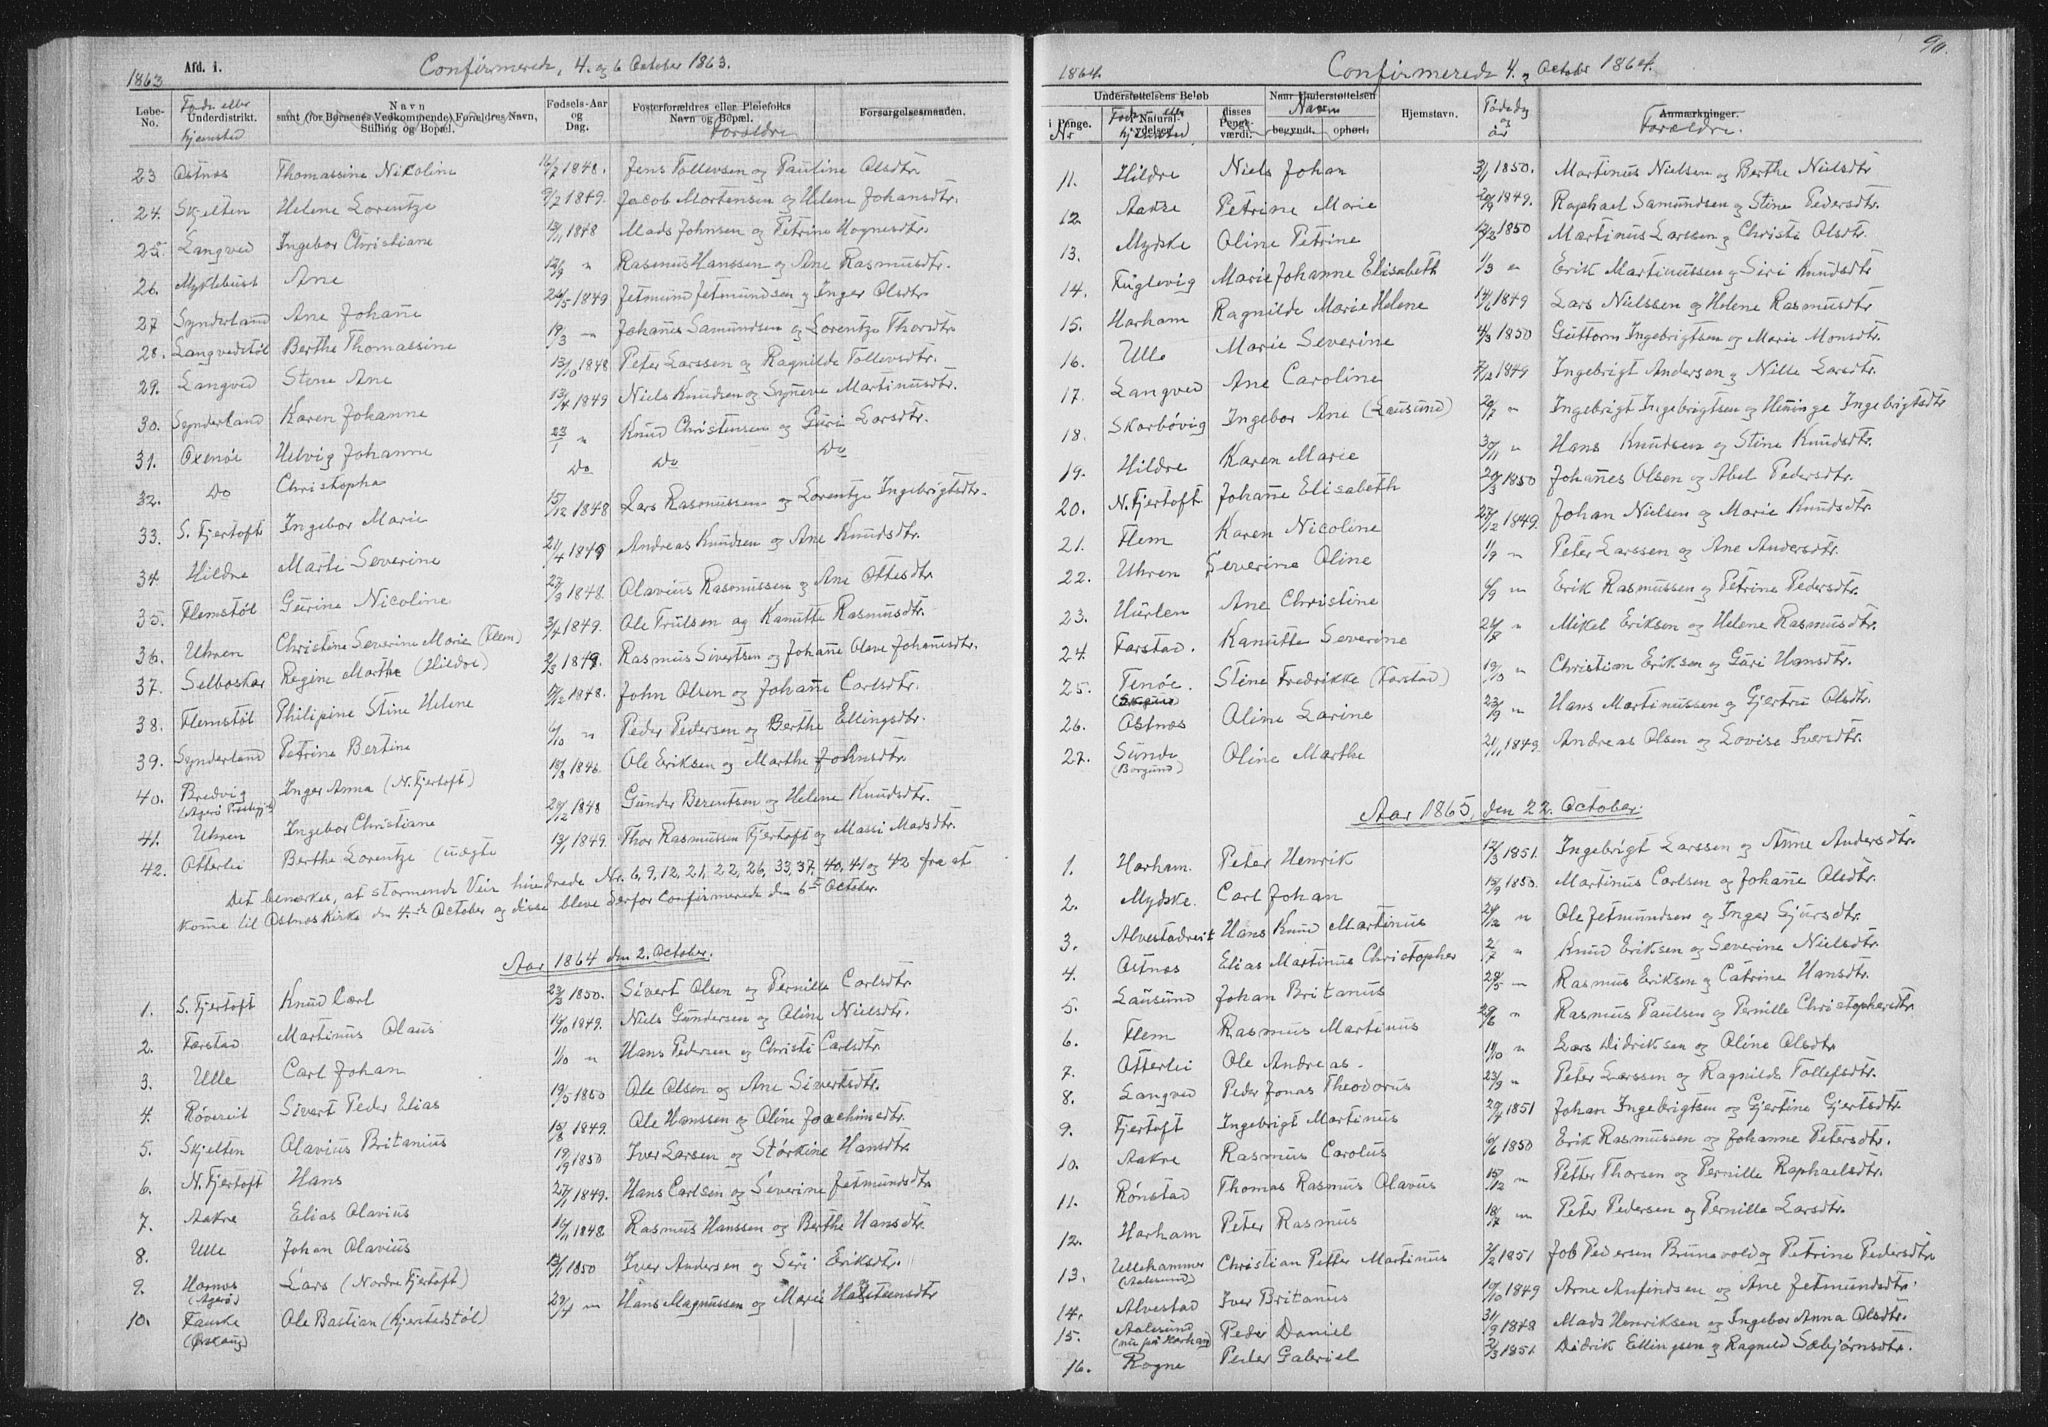 1863 Afd. 1. Confirmerede, 4. og 6 October 1863.
Løbe-No. Føde eller Underdistrikt. hjemsted Navn samt (for Børnenes Vedkommende) Forældres Navn, Stilling og Bopæl. Fødsels-Aar og Dag. Fosterforældres eller Pleiefolks Navn og Bopæl. Forældre Forsørgelsesmaaden.
23 Østnes Thomassine Nikoline 16/7 1848. Jens Tollevsen og Pauline Olsdtr.
24. Skjelten Helene Lorentze 9/2 1849. Jacob Mortensen og Helene Johansdtr.
25. Langved Ingebor Christiane 13/11 1848 Mads Johnsen og Petrine Hognesdtr.
26. Myklebust Ane 12/9 " Rasmus Hanssen og Ane Rasmusdtr.
27 Synderland Ane Johane 24/5 1849 Jetmund Jetmundsen og Inger Olsdtr.
28. Langvedstøl Berthe Thomassine 19/3 " Johanes Samundsen og Lorentze Thorsdtr.
29. Langved Stine Ane 13/10 1848 Peter Larssen og Ragnilde Tollevsdtr.
30. Synderland Karen Johanne 13/4 1849 Niels Knudsen og Synerve Martinusdtr.
31. Oxenøe Helvig Johanne 23/1 " Knud Christensen og Guri Larsdtr.
32. Do Christopha Do Do Do
33. S. Fjertoft Ingebor Marie 15/12 1848 Lars Rasmussen og Lorentze Ingebrigtsdtr.
34 Hildre Marte Severine 21/4 1849 Andreas Knudsen og Ane Knudsdtr.
35. Flemstøl Gurine Nicoline 23/9 1848. Olavius Rasmussen og Ane Ottesdtr.
36. Uhren Christine Severine Marie (Flem) 3/4 1849. Ole Trulsen og Kanutte Rasmusdtr.
37. Selboskar Regine Marthe (Hildre) 2/3 1849. Rasmus Sivertsen og Johane Olene Johanesdtr.
38. Flemstøl Philipine Stine Helene 17/12 1848. John Olsen og Johane Carlsdtr.
39. Synderland Petrine Bertine 6/10 " Peder Pedersen og Berthe Ellingsdtr.
40. Bredvig (Agerø Prestegj) Inger Anna (N. Fjertoft) 18/8 1846. Ole Eriksen og Marthe Johnsdtr.
41. Uhren Ingebor Christiane 20/12 1848 Gunder Berentsen og Helene Knudsdtr.
42. Otterlei Berthe Lorentze (uægte 13/1 1849. Thor Rasmussen Fjertoft og Massi Madsdtr.
Det bemærkes, at stormende Veir hindrede Nr. 6, 9, 12, 21, 22, 26, 33, 37, 40, 41 og 42 fra at
kome til Østnes Kirke den 4.de October og disse bleve derfor confirmerede den 6te October.
Aar 1864 den 2. October.
1. S. Fjertoft Knud Carl 23/3 1850. Sivert Olsen og Pernille Carlsdtr.
2. Farstad Martinus Olaus 19/10 1849. Niels Gundersen og Oline Nielsdtr.
3. Ulle Carl Johan 1/10 " Hans Pedersen og Christi Carlsdtr.
4. Røvereit Sivert Peder Elias 19/5 1850 Ole Olsen og Ane Sivertsdtr.
5. Skjelten Olavius Britanius 15/8 1849. Ole Hanssen og Oline Joachimsdtr.
6. N. Fjertoft Hans 19/9 1850 Iver Larsen og Størkine Hansdtr.
7. Aakre Elias Olavius 27/1 1849. Hans Carlsen og Severine Jetmundsdtr.
8. Ulle Johan Olavius 16/11 1848. Rasmus Hanssen og Berthe Hansdtr.
9. Harnes (Agerø) Lars (Nordre Fjertoft) 13/1 1850 Iver Andersen og Seri Eriksdtr.
10. Fauske (Ørskoug) Ole Bastian (Kjerstedstøl) 29/4 " Hans Magnussen og Marie Halsteensdtr
90.
1864. Confirmerede 4. og October 1864.
Understøttelsens Beløb Naar Understøttelsen
i Penge. Nr Føde eller Natural-ydelser. hjemsted disses Penge-værdi. Navn begyndt. ophørt. Hjemstavn. Fødedag og år Anmærkninger. Forældre.
11. Hildre Niels Johan 3/1 1850. Martinus Nielsen og Berthe Nielsdtr
12 Aakre Petrine Marie 20/9 1849. Raphael Samundsen og Stine Pedersdtr.
13. Mydske Oline Petrine 12/2 1850 Martinus Larssen og Christi Olsdtr.
14. Fuglevig Marie Johanne Elisabeth 1/3 " Erik Martinussen og Siri Knudsdtr
15. Harham Ragnilde Marie Helene 14/6 1849 Lars Nielssen og Helene Rasmusdtr.
16. Ulle Marie Severine 4/3 1850 Guttorm Ingebrigtsen og Marie Monsdtr.
17. Langved Ane Caroline 7/12 1849 Ingebrigt Andersen og Nille Larsdtr.
18. Skarbøvig Ingebor Ane (Lausund) 20/7 " Ingebrigt Ingebrigtsen og Heninge Ingebrigtsdtr
19. Hildre Karen Marie 30/11 " Hans Knudsen og Stine Knudsdtr.
20. N. Fjertoft Johane Elisabeth 20/3 1850 Johanes Olsen og Abel Pedersdtr.
21. Flem Karen Nicoline 27/12 1849. Johan Nielsen og Marie Knudsdtr.
22. Uhren Severine Oline 1/9 " Peter Larssen og Ane Andersdtr.
23. Hurlen Ane Christine 6/9 " Erik Rasmussen og Petrine Pedersdtr.
24. Farstad. Kanutte Severine 24/7 " Mikel Eriksen og Helene Rasmusdtr.
25. Tenøe. Stine Fredrikke (Farstad) 19/10 " Christian Eriksen og Guri Hansdtr.
26. Østnes Oline Larine 23/9 " Hans Martinussen og Gjertru Olsdtr.
27. Sunde (Borgund) Oline Marthe 21/11 1849 Andreas Olsen og Lovise Iversdtr.
Aar 1865, den 22. October:
1. Harham. Peter Henrik 12/3 1851. Ingebrigt Larssen og Anne Andersdtr.
2. Mydske. Carl Johan 15/9 1850. Martinus Carlsen og Johane Olsdtr.
3. Alvestadreit Hans Knud Martinus 24/12 " Ole Jetmundsen og Inger Sjursdtr.
4. Østnes Elias Martinus Christopher 2/7 " Knud Eriksen og Severine Nielsdtr.
5. Lausund Johan Britanus 24/5 " Rasmus Eriksen og Catrine Hansdtr.
6. Flem Rasmus Martinus 29/6 " Rasmus Paulsen og Pernille Christophersdtr.
7. Otterlei Ole Andreas. 14/10 " Lars Didriksen og Oline Olsdtr.
8. Langved Peder Jonas Theodorus 23/9 " Peter Larssen og Ragnilde Tollefsdtr.
9. Fjertoft Ingebrigt Martinus 20/4 1851 Johan Ingebrigtsen og Gjertine Gjertsdtr.
10. Aakre Rasmus Carolus 6/6 1850 Erik Rasmussen og Johanne Petersdtr.
11. Rønstad Thomas Rasmus Olavus 15/12 " Petter Thorsen og Pernille Raphaelsdtr.
12. Harham Peter Rasmus 18/7 " Peter Pedersen og Pernille Larsdtr.
13. Ullehammer (Aalesund) Christian Petter Martinus 2/2 1851 Job Pedersen Brunavold og Petrine Pedersdtr.
14. Alvestad Iver Britanus 19/10 1849 Arne Anfindsen og Ane Jetmundsdtr.
15. Aalesund (nu på Harham) Peder Daniel 31/9 1848 Mads Henriksen og Ingebor Anna Olsdtr.
16. Rogne Peder Gabriel 2/3 1851. Didrik Ellingsen og Ragnild Sæbjørnsdtr.